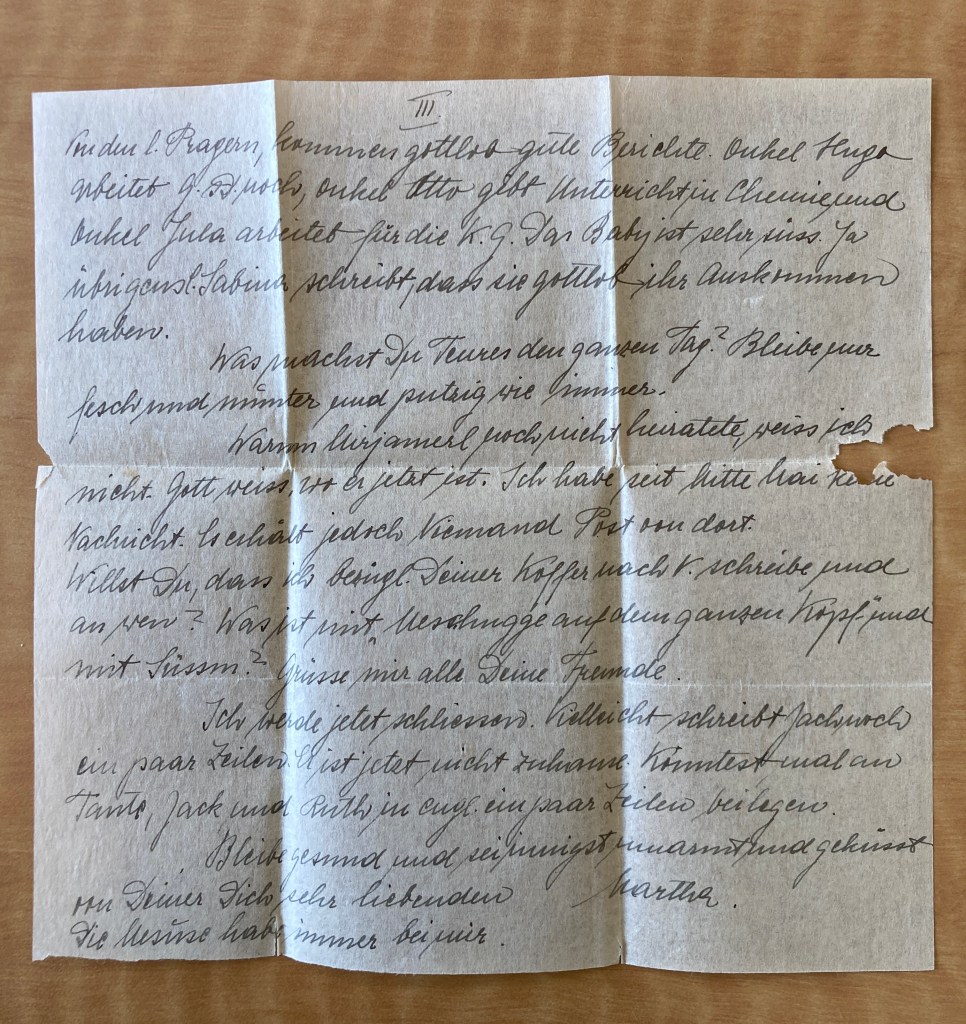 III.
Von den l. Pragern, kommen gottlob gute Berichte. Onkel Hugo
arbeitet G. s. D. noch, Onkel Otto gibt Unterricht in Chemie und
Onkel Jula arbeitet für die K. G. Das Baby ist sehr süss. Ja
übrigens l. Sabina schreibt, dass sie gottlob ihr Auskommen
haben.
Was machst Du Teures den ganzen Tag? Bleibe nur
fesch und munter und putzig wie immer.
Warum Mirjamerl noch nicht heiratete, weiss ich
nicht. Gott weiss, wo er jetzt ist. Ich habe seit Mitte Mai keine
Nachricht. Es erhält jedoch Niemand Post von dort.
Willst Du, dass ich bezügl. Deiner Koffer nach V. schreibe und
an wen? Was ist mit „Meschugge auf dem ganzen Kopf" und
mit Süssm? Grüsse mir alle Deine Freunde.
Ich werde jetzt schliessen. Vielleicht schreibt Jack noch
ein paar Zeilen. Er ist jetzt nicht zuhause. Könntest mal an
Tante, Jack und Ruth in engl. ein paar Zeilen beilegen.
Bleibe gesund und sei innigst umarmt und geküsst
von Deiner Dich sehr liebenden Martha.
Die Mesuse habe immer bei mir.